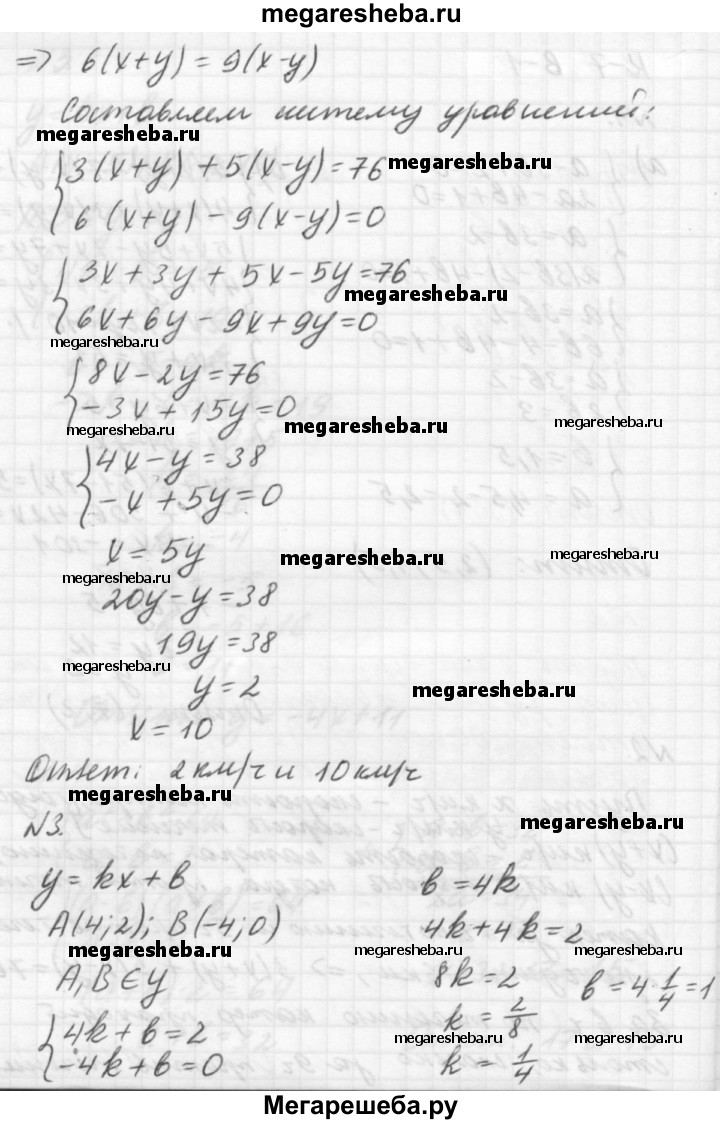 megaresheba.ru
=> 6(x+y) = 9(x-y)
Составляем систему уравнений:
megaresheba.ru
{ 3(x+y) + 5(x-y) = 76
megaresheba.ru
6(x+y) - 9(x-y) = 0
{ 3x + 3y + 5x - 5y = 76
megaresheba.ru
6x + 6y - 9x + 9y = 0
megaresheba.ru
{ 8x - 2y = 76
-3x + 15y = 0
megaresheba.ru megaresheba.ru megaresheba.ru
{ 4x - y = 38
-x + 5y = 0
x = 5y
megaresheba.ru megaresheba.ru
megaresheba.ru
20y - y = 38
19y = 38
megaresheba.ru
y = 2
megaresheba.ru
x = 10
Ответ: 2 км/ч и 10 км/ч
megaresheba.ru
N3.
megaresheba.ru
y = kx + b
A(4;2); B(-4;0)
megaresheba.ru
A, B ∈ y
{ 4k + b = 2
-4k + b = 0
b = 4k
4k + 4k = 2
megaresheba.ru megaresheba.ru
8k = 2
b = 4 · 1/4 = 1
k = 2/8
megaresheba.ru megaresheba.ru
k = 1/4
Мегарешеба.ру